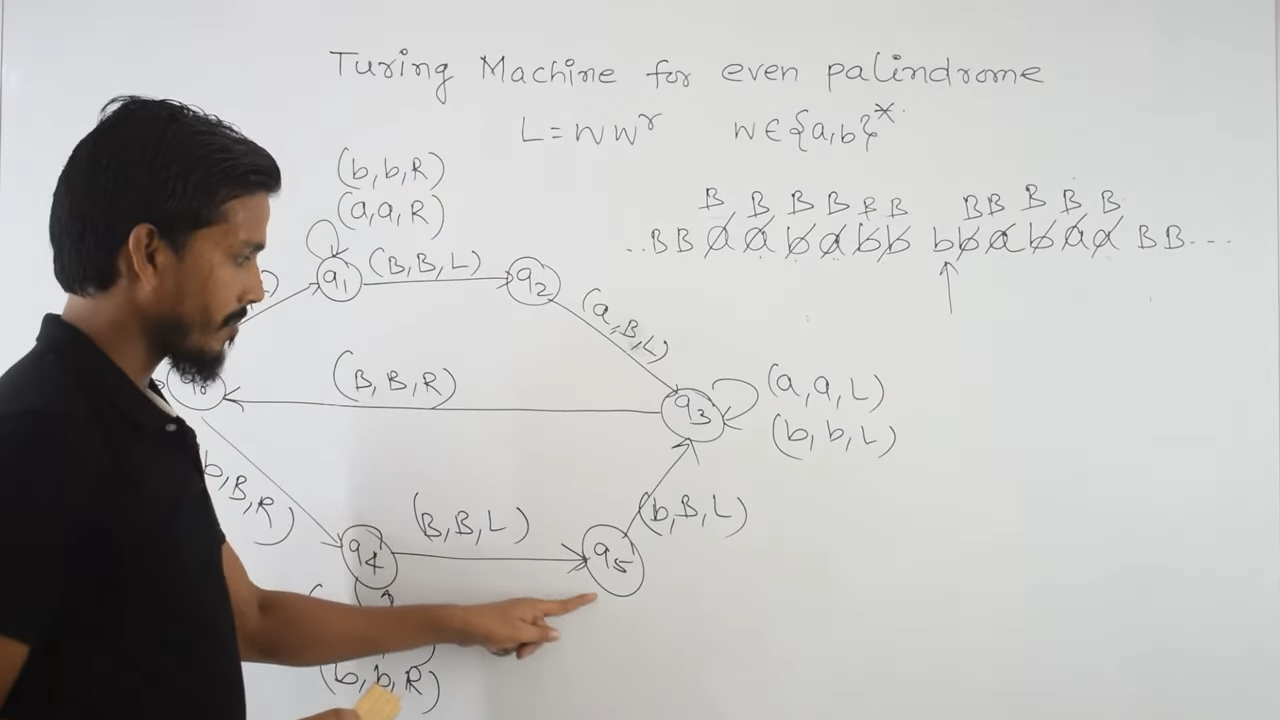 Turing Machine for even palindrome
L = WWʳ W ∈ {a,b}*
(b, b, R)
(a, a, R)
B B B B B B B B B B B
..BB a a b a b b b b a b a a BB---
q1 (B, B, L) q2
(a, B, L)
(B, B, R)
q3 (a, a, L)
(b, b, L)
b, B, R)
(B, B, L) (b, B, L)
q4 q5
(b, b, R)